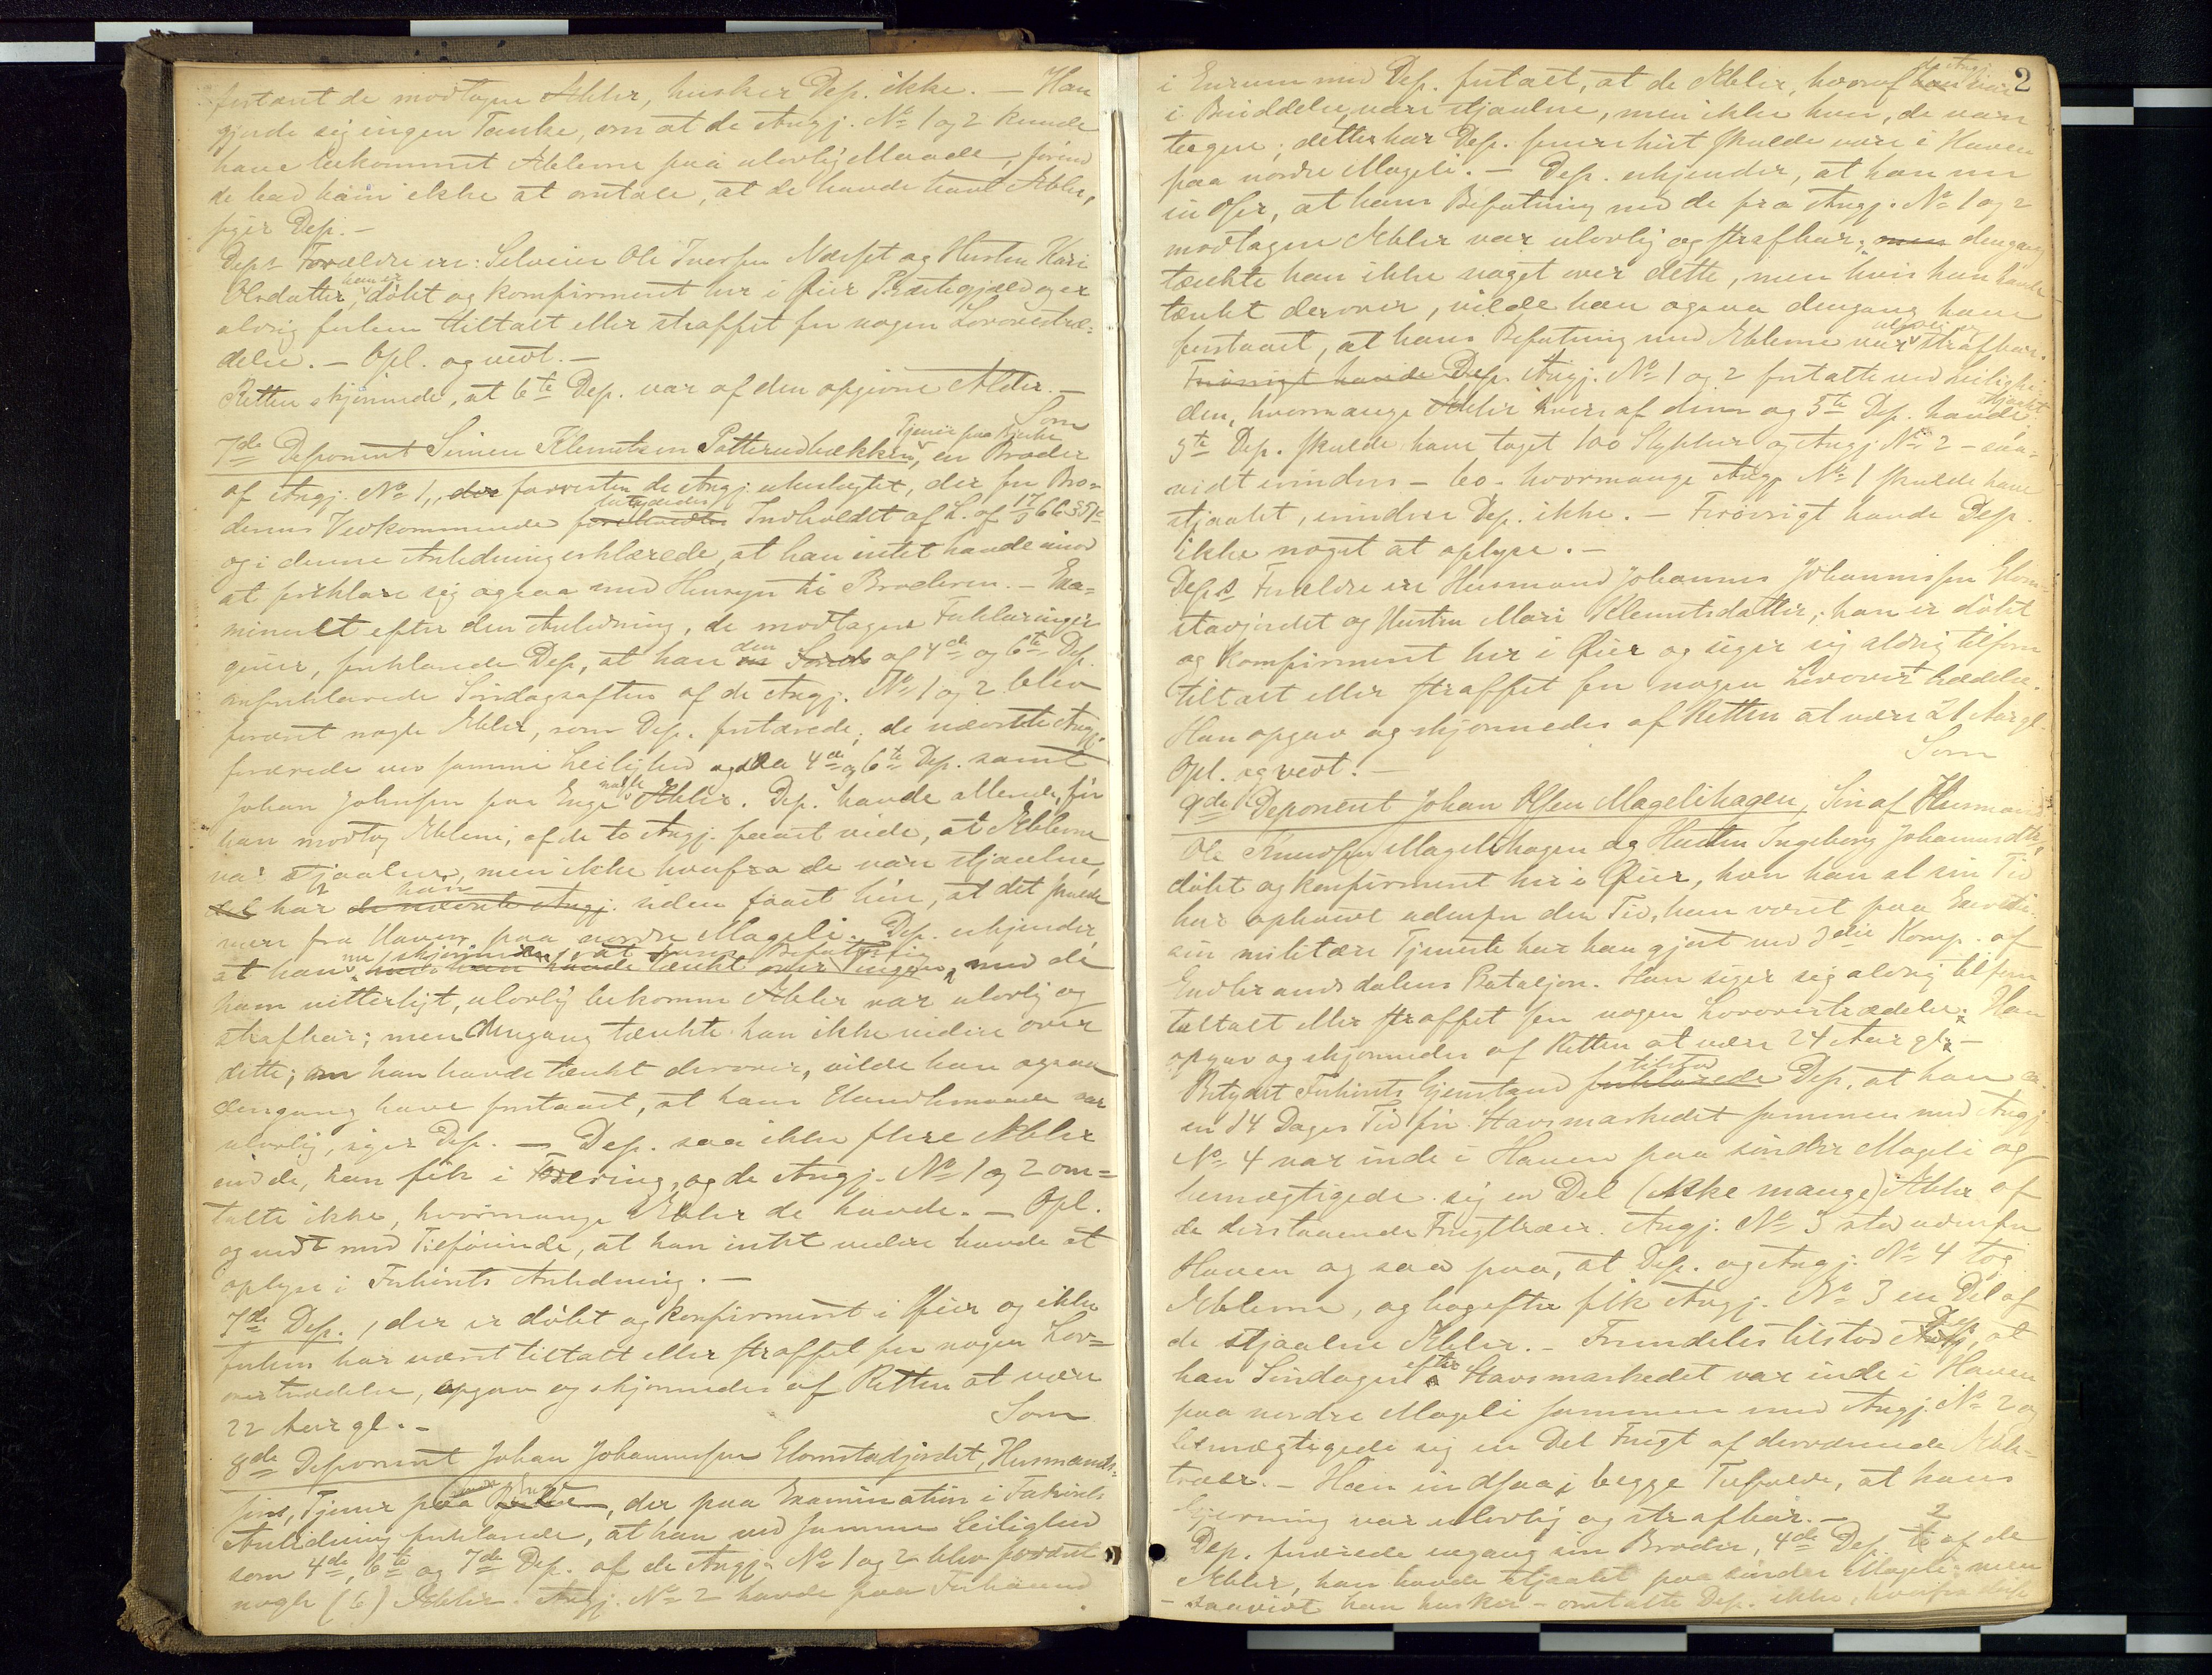 fortæret de modtagne Æbler, husker Dep. ikke. — Han
gjorde sig ingen Tanke, om at de Angj. No 1 og 2 kunde
have bekommet Æblerne paa ulovlig Maade, forind
de bad ham ikke at omtale, at de havde havt Æbler,
siger Dep. —
Deps Forældre ere: Selveier Ole Iversen Næsset og Hustru Kari
Olsdatter, han er døbt og konfirmeret her i Øier Præstegjæld og er
aldrig forhen tiltalt eller straffet for nogen Lovovertræ-
delse. — Opl. og vedt. —
Retten skjønnede, at 6te Dep. var af den opgivne Alder. —
Som
7de Deponent Simen Klemetsen Potterudbækken, Tjener paa, en Broder
af Angj. No 1, der forresten de Angj. ubeslægtet, der for Bro-
derens Vedkommende betydedes Indholdet af L. af 17/5 66 § 5
og i denne Anledning erklærede, at han intet havde imod
at forklare sig ogsaa med Hensyn til Broderen. — Exa-
mineret efter den Anledning, de modtagne Forklaringer
giver, forklarede Dep, at han den af 4de og 6te Dep.
omforklarede Søndagsaften af de Angj. No 1 og 2 blev
foræret nogle Æbler, som Dep. fortærede; de nævnte Angj.
forærede ved samme Leilighed ogsaa 4de og 6te Dep. samt
Johan Johnsen paa Enge nogle Æbler. Dep. havde allerede, før
han modtog Æblerne, af de to Angj. faaet vide, at Æblerne
var stjaalne, men ikke hvorfra de vare stjaalne,
har han siden faaet høre, at det skulde
være fra Haven paa nordre Mageli. Dep. erkjender,
at han nu skjønner, at hans Befatning med de
ham vitterligt, ulovlig bekomne Æbler var ulovlig og
strafbar; men dengang tænkte han ikke videre over
dette; om han havde tænkt derover, vilde han ogsaa
dengang have forstaaet, at hans Handlemaade var
ulovlig, siger Dep. — Dep. saa ikke flere Æbler
end de, han fik i Foræring, og de Angj. No 1 og 2 om-
talte ikke, hvormange Æbler de havde. — Opl.
og vedt med Tilføiende, at han intet videre havde at
oplyse i Forhørets Anledning. —
7de Dep., der er døbt og konfirmeret i Øier og ikke
forhen har været tiltalt eller straffet for nogen Lov-
overtrædelse, opgav og skjønnedes af Retten at være
22 Aar gl. —
Som
8de Deponent Johan Johannesen Glomstadjordet, Husmands-
søn, Tjener paa, der paa Examination i Forhørets
Anledning forklarede, at han ved samme Leilighed
som 4de, 6te og 7de Dep. af de Angj. No 1 og 2 blev foræret
nogle (6) Æbler. Angj. No 2 havde paa Forhaand
2
i Enrum med Dep. fortalt, at de Æbler, hvoraf Angj. var
i Besiddelse, vare stjaalne, men ikke hvor, de vare
tagne; dette har Dep. senere hørt skulde være i Haven
paa nordre Mageli. — Dep. erkjender, at han nu
indser, at hans Befatning med de fra Angj. No 1 og 2
modtagne Æbler var ulovlig og strafbar; dengang
tænkte han ikke noget over dette, men hvis han havde
tænkt derover, vilde han ogsaa dengang have
forstaaet, at hans Befatning med Æblerne var ulovlig og strafbar.
Forøvrigt havde Dep. Angj. No 1 og 2 fortalte ved Leilighe-
den, hvormange Æbler hver af dem og 5te Dep. havde stjaalet,
5te Dep. skulde have taget 100 Stykker og Angj No 2 — saa-
vidt mindes — 60. hvormange Angj. No 1 skulde have
stjaalet, mindes Dep. ikke. — Forøvrigt havde Dep.
ikke noget at oplyse. —
Deps Forældre ere Husmand Johannes Johannesen Glom-
stadjordet og Hustru Mari Klemetsdatter; han er døbt
og konfirmeret her i Øier og siger sig aldrig tilforn
tiltalt eller straffet for nogen Lovovertrædelse.
Han opgav og skjønnedes af Retten at være 21 Aar gl.
Som
Opl. og vedt. —
9de Deponent Johan Olsen Magelihagen, Søn af Husmand
Ole Knudsen Magelihagen og Hustru Ingeborg Johannesdtr,
døbt og konfirmeret her i Øier, hvor han al sin Tid
har opholdt udenfor den Tid, han været paa Exercitie.
sin militære Tjeneste har han gjort ved 3die Komp. af
Gudbrandsdalens Bataljon. Han siger sig aldrig tilforn
tiltalt eller straffet for nogen Lovovertrædelse. Han
opgav og skjønnedes af Retten at være 24 Aar gl. —
Betydet Forhørets Gjenstand tilstod Dep, at han ca.
en 14 Dages Tid før Stavsmarkedet sammen med Angj.
No 4 var inde i Haven paa søndre Mageli og
bemægtigede sig en Del (ikke mange) Æbler af
de derstaaende Frugttræer. Angj. No 3 stod udenfor
Haven og saa paa, at Dep. og Angj. No 4 tog
Æblerne, og bagefter fik Angj. No 3 en Del af
de stjaalne Æbler. — Fremdeles tilstod Dep, at
han Søndagen efter Stavsmarkedet var inde i Haven
paa nordre Mageli sammen med Angj. No 2 og
bemægtigede sig en Del Frugt af derværende Æble-
træer. — Han indsaa i begge Tilfælde, at hans
Gjerning var ulovlig og strafbar. —
Dep. forærede engang sin Broder, 4de Dep. 2 af de
Æbler, han havde stjaalet paa søndre Mageli; men
— saavidt han husker — omtalte Dep. ikke, hvorfra disse